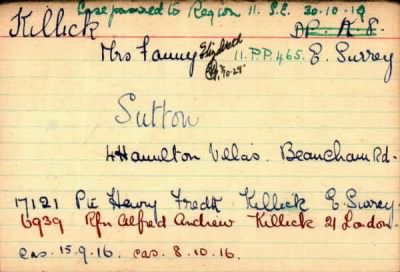 Case passed to Region 11. S.E. 30-10-19
Killick
Mrs Fanny Elizabeth 11.P.P.465. E. Surrey
Sutton
4 Hamilton Villas. Beaucham Rd.
17121 Pte Henry Fredk Killick E. Surrey.
6939 Rfn Alfred Andrew Killick 21 London.
cas. 15.9.16. cas. 8.10.16.